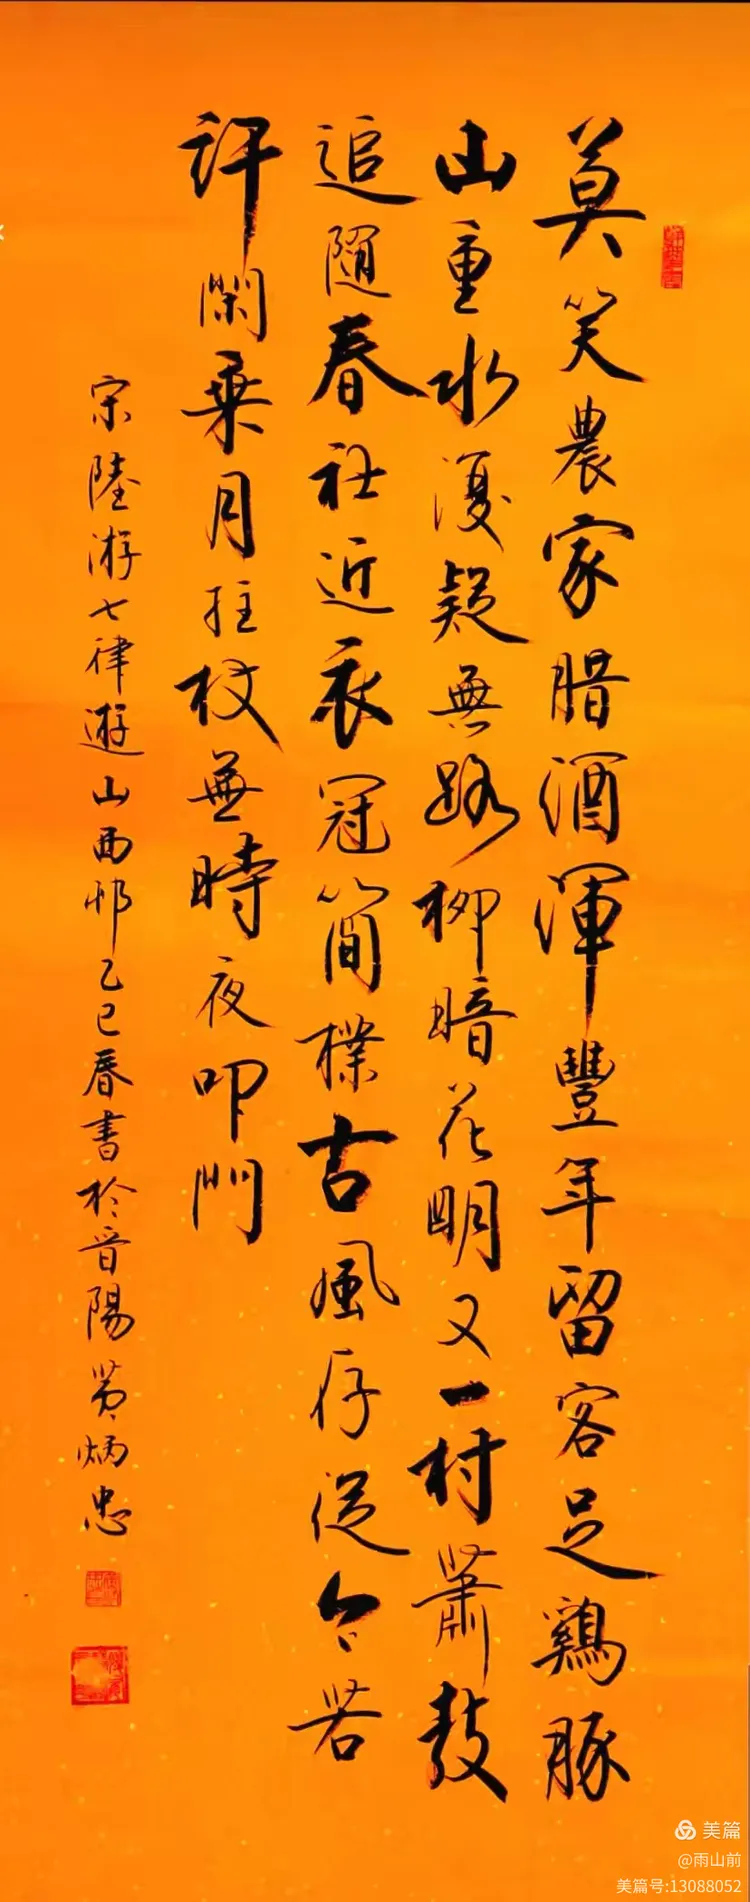 莫笑農家腊酒渾豐年留客足鷄豚
山重水複疑無路柳暗花明又一村蕭鼓
追隨春社近衣冠簡樸古風存從今若
許閑乘月拄杖無時夜叩門
宋陸游七律遊山西邨乙巳春書於晉陽黄炳忠
美篇
@雨山前
美篇号:13088052